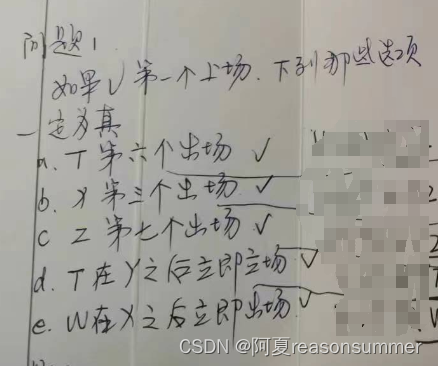 问题1
如果V第一个上场.下列那些选项
一定为真
a. T第六个出场 ✓
b. X第三个出场 ✓
c Z第七个出场 ✓
d. T在Y之后立即立场 ✓
e. W在X之后立即出场. ✓
CSDN @阿夏reasonsummer